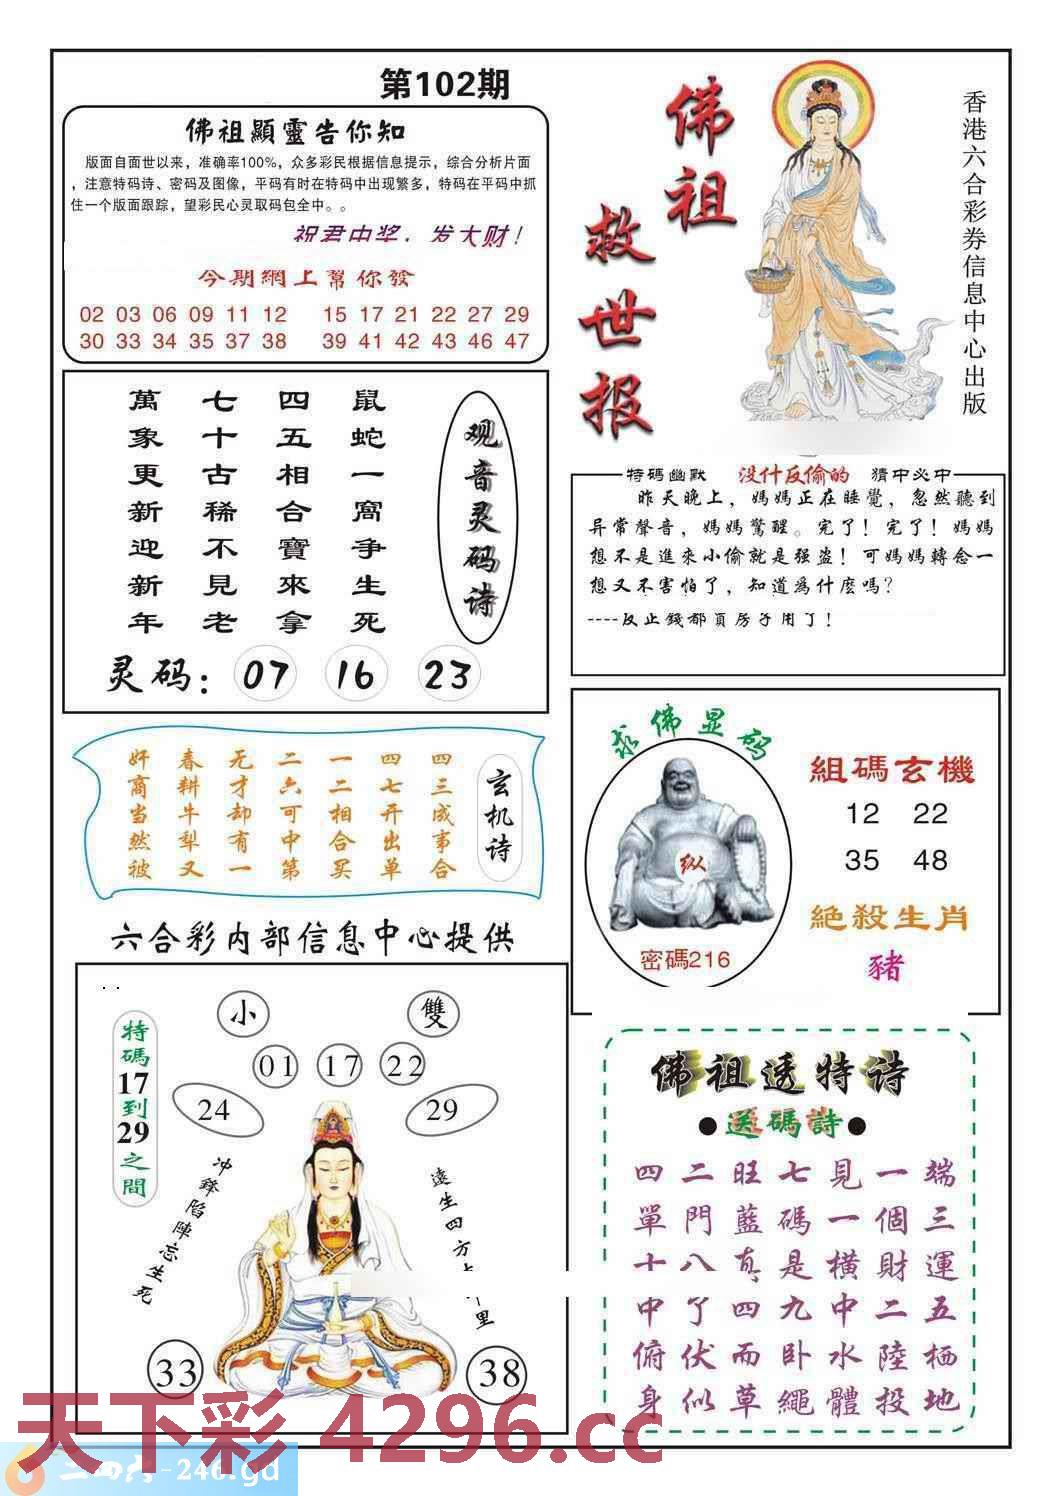 第102期
佛祖顯靈告你知
版面自面世以来，准确率100%，众多彩民根据信息提示，综合分析片面
，注意特码诗、密码及图像，平码有时在特码中出现繁多，特码在平码中抓
住一个版面跟踪，望彩民心灵取码包全中。。
祝君中奖，发大财！
今期網上幫你發
02 03 06 09 11 12 15 17 21 22 27 29
30 33 34 35 37 38 39 41 42 43 46 47
佛祖
救世报
香港六合彩券信息中心出版
观音灵码诗
鼠蛇一窩争生死
四五相合寶來拿
七十古稀不見老
萬象更新迎新年
灵码：07 16 23
特碼幽默 没什反偷的 猜中必中
昨天晚上，媽媽正在睡覺，忽然聽到
异常聲音，媽媽驚醒。完了！完了！媽媽
想不是進來小偷就是强盗！可媽媽轉念一
想又不害怕了，知道爲什麽嗎？
----反正錢都買房子用了！
玄机诗
四三成事合
四七开出单
一二相合买
二六可中第
无才却有一
春耕牛犁又
奸商当然被
求佛显码
纵
密碼216
組碼玄機
12 22
35 48
絶殺生肖
豬
六合彩内部信息中心提供
小 雙
01 17 22
24 29
特碼17到29之間
冲鋒陷陣忘生死
遠生四方 里
33 38
佛祖透特诗
●送碼詩●
四二旺七見一端
單門藍碼一個三
十八真是横財運
中了四九中二五
俯伏而卧水陸栖
身似草繩體投地
天下彩 4296.cc
二四六-246.gd